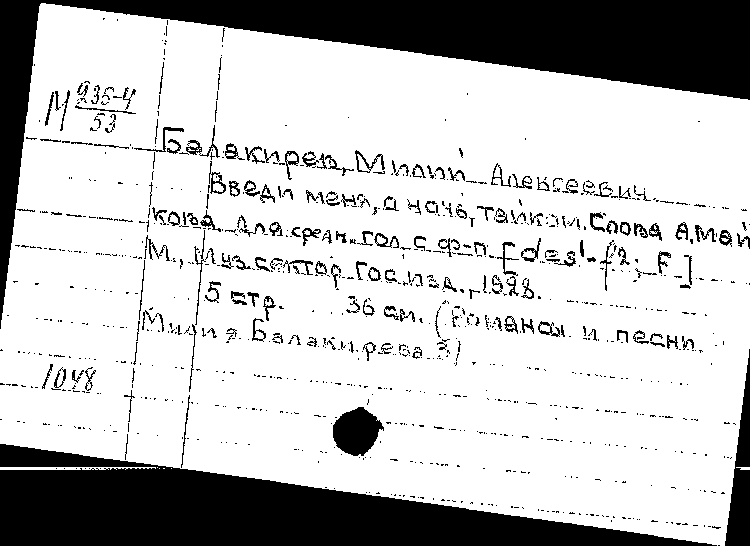 М 236-4
53
Балакирев, Милий Алексеевич.
Введи меня, о ночь, тайком. Слова А. Май
кова. Для средн. гол. с ф-п. [des¹-f²; F]
М., Муз. сектор Гос. изд., 1928.
5 стр. 36 см. (Романсы и песни
Милия Балакирева 3).
1048